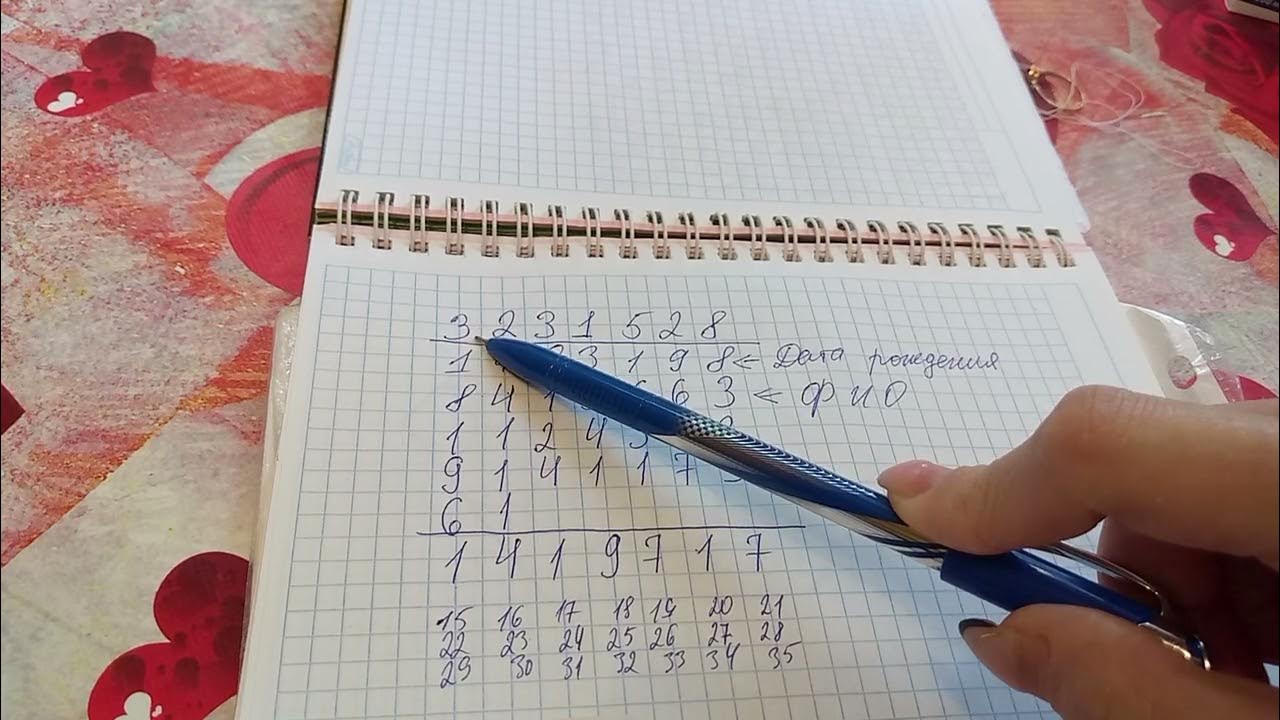 3 2 3 1 5 2 8
1 3 1 9 8 ← Дата рождения
8 4 1 6 3 ← ФИО
1 1 2 4
9 1 4 1 1 7
6 1
1 4 1 9 7 1 7
15 16 17 18 19 20 21
22 23 24 25 26 27 28
29 30 31 32 33 34 35